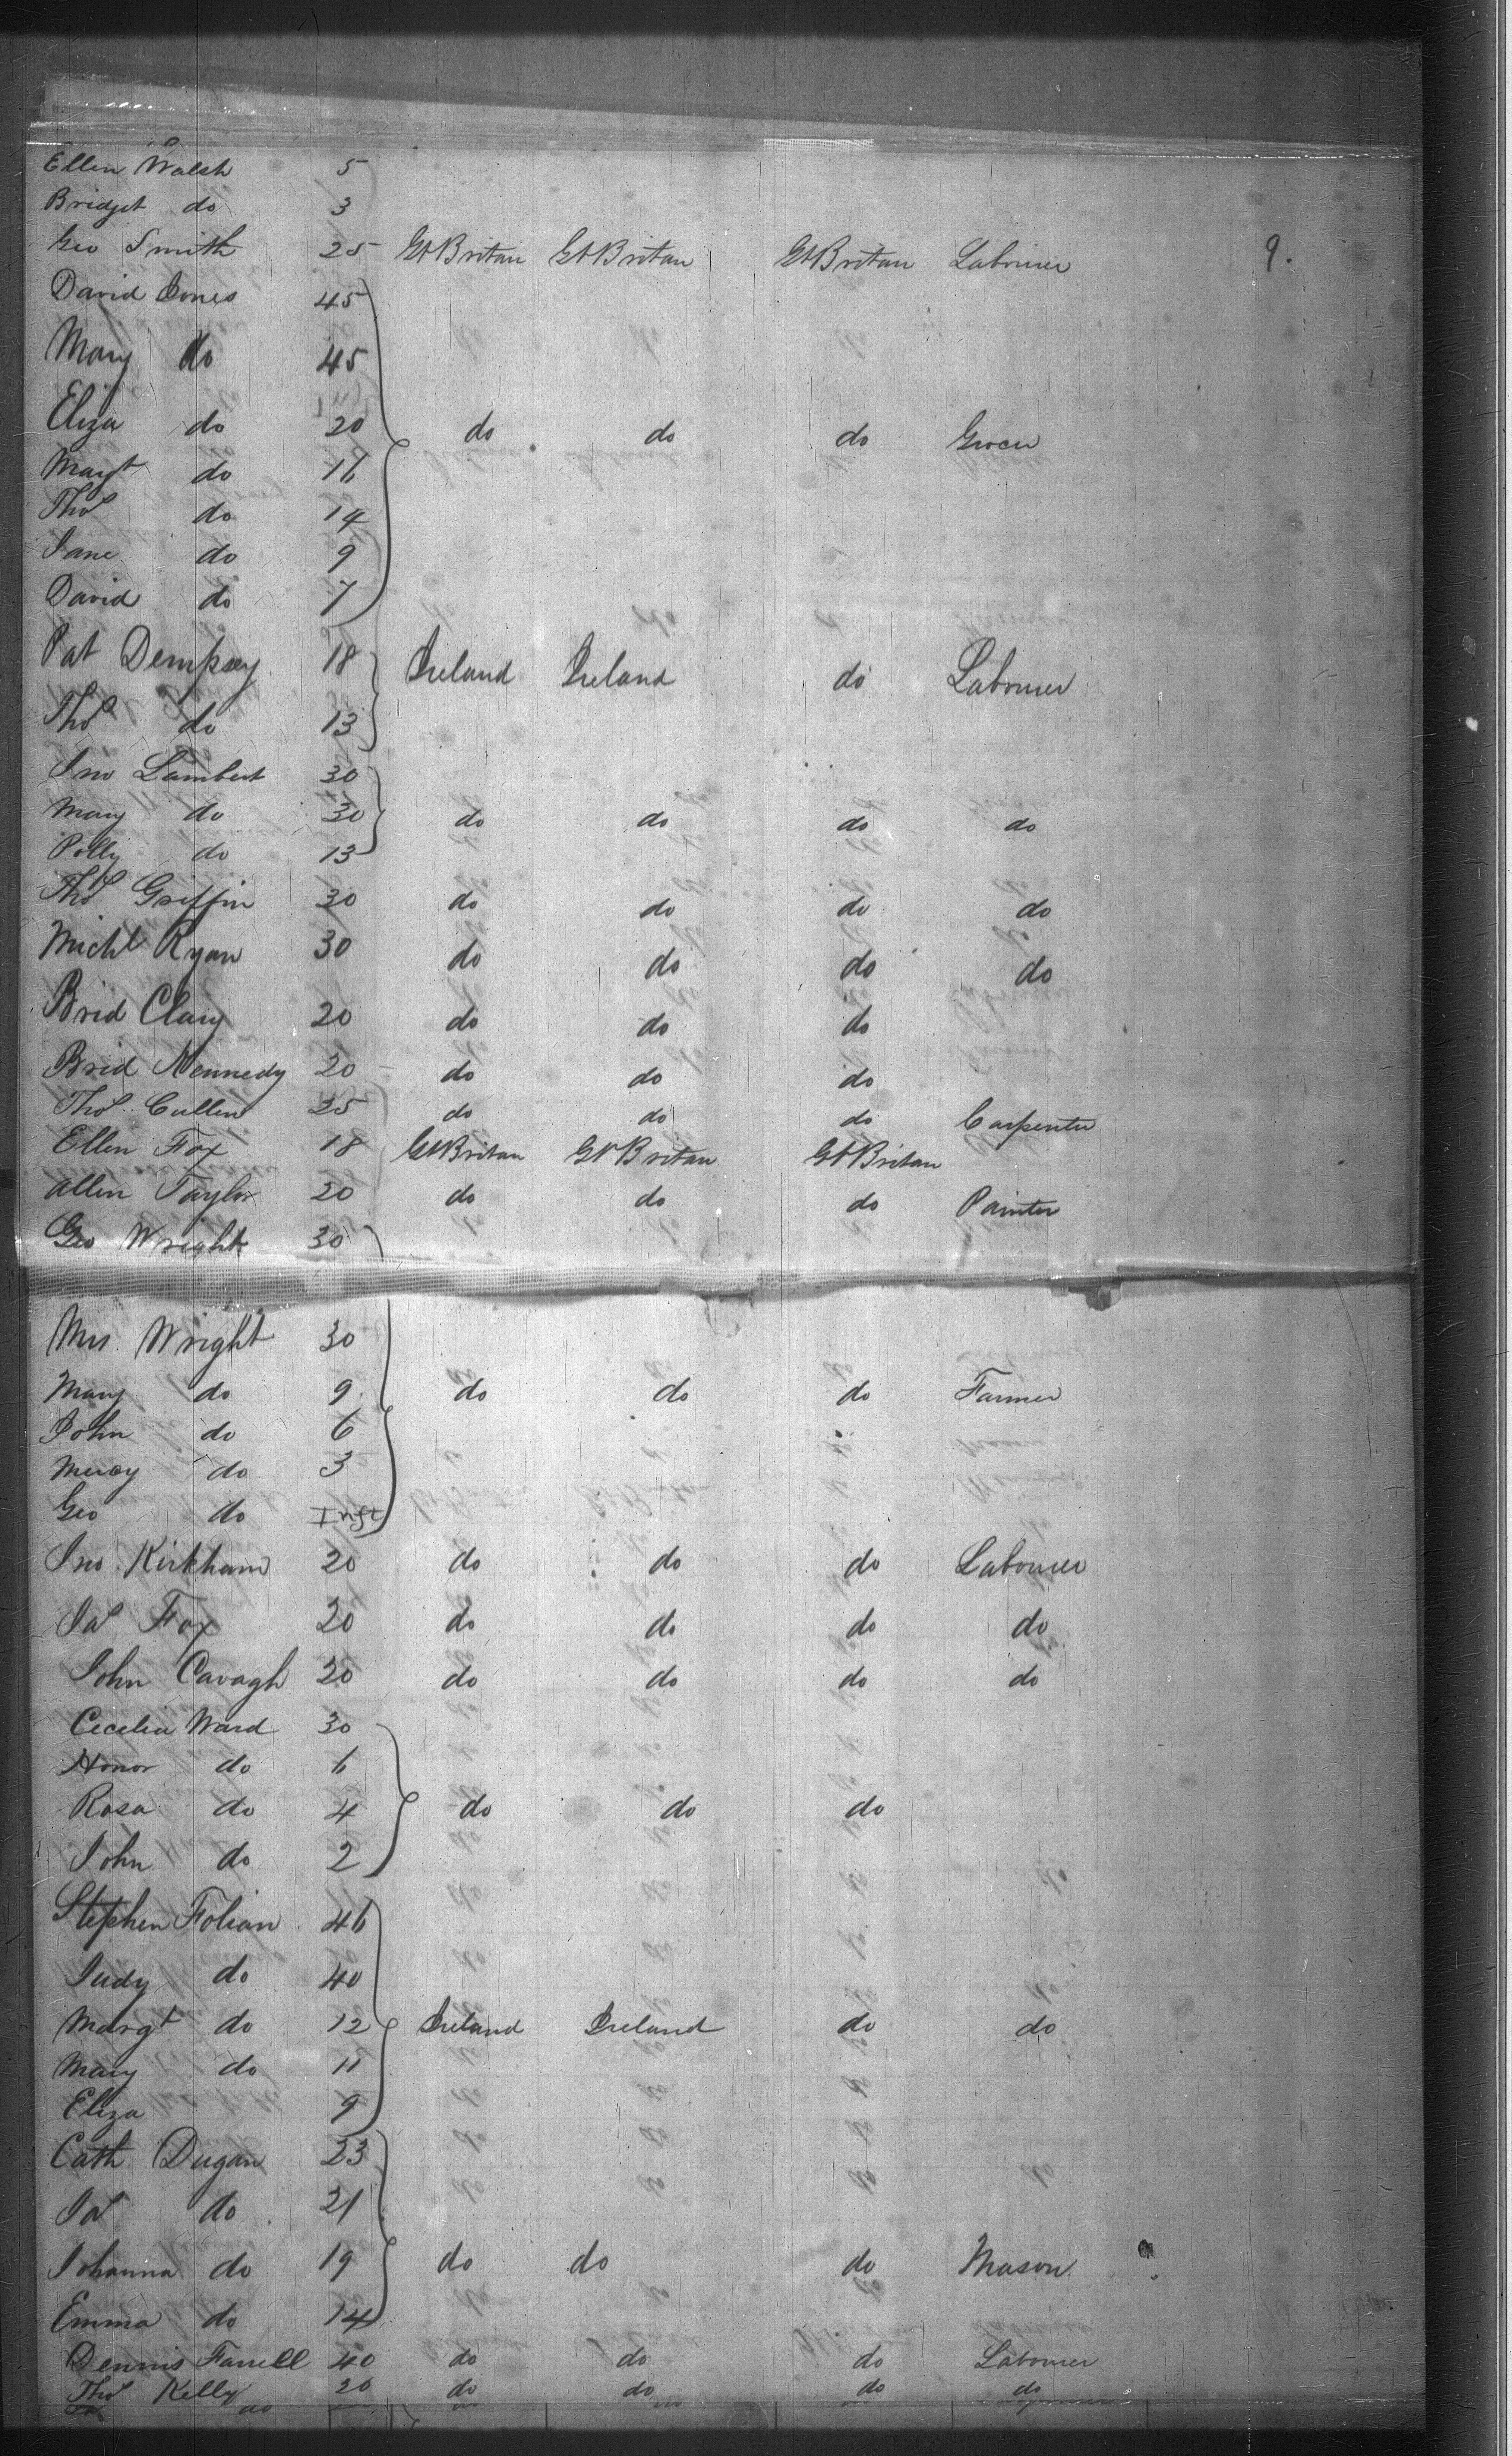 Ellen Walsh 5
Bridget do 3
Geo Smith 25 Gt Britan Gt Britan Gt Britan Labourer 9.
David Jones 45
Mary do 45
Eliza do 20 do do do Grocer
Margt do 16
Thos do 14
Jane do 9
David do 7
Pat Dempsey 18 Ireland Ireland do Labourer
Thos do 13
Jno Lambert 30
Mary do 30 do do do do
Polly do 13
Thos Griffin 30 do do do do
Michl Ryan 30 do do do do
Brid Clary 20 do do do
Brid Kennedy 20 do do do
Thos Cullen 25 do do do Carpenter
Ellen Fox 18 Gt Britan Gt Britan Gt Britan
Allen Taylor 20 do do do Painter
Geo Wright 30
Mrs. Wright 30
Mary do 9 do do do Farmer
John do 6
Mercy do 3
Geo do Inft
Jno. Kirkham 20 do do do Labourer
Jas Fox 20 do do do do
John Cavagh 20 do do do do
Cecelia Ward 30
Honor do 6
Rosa do 4 do do do
John do 2
Stephen Folian 46
Judy do 40
Margt do 12 Ireland Ireland do do
Mary do 11
Eliza 9
Cath Dugan 23
Jas do 21
Johanna do 19 do do do Mason
Emma do 14
Dennis Farrell 40 do do do Labourer
Thos Kelly 20 do do do do